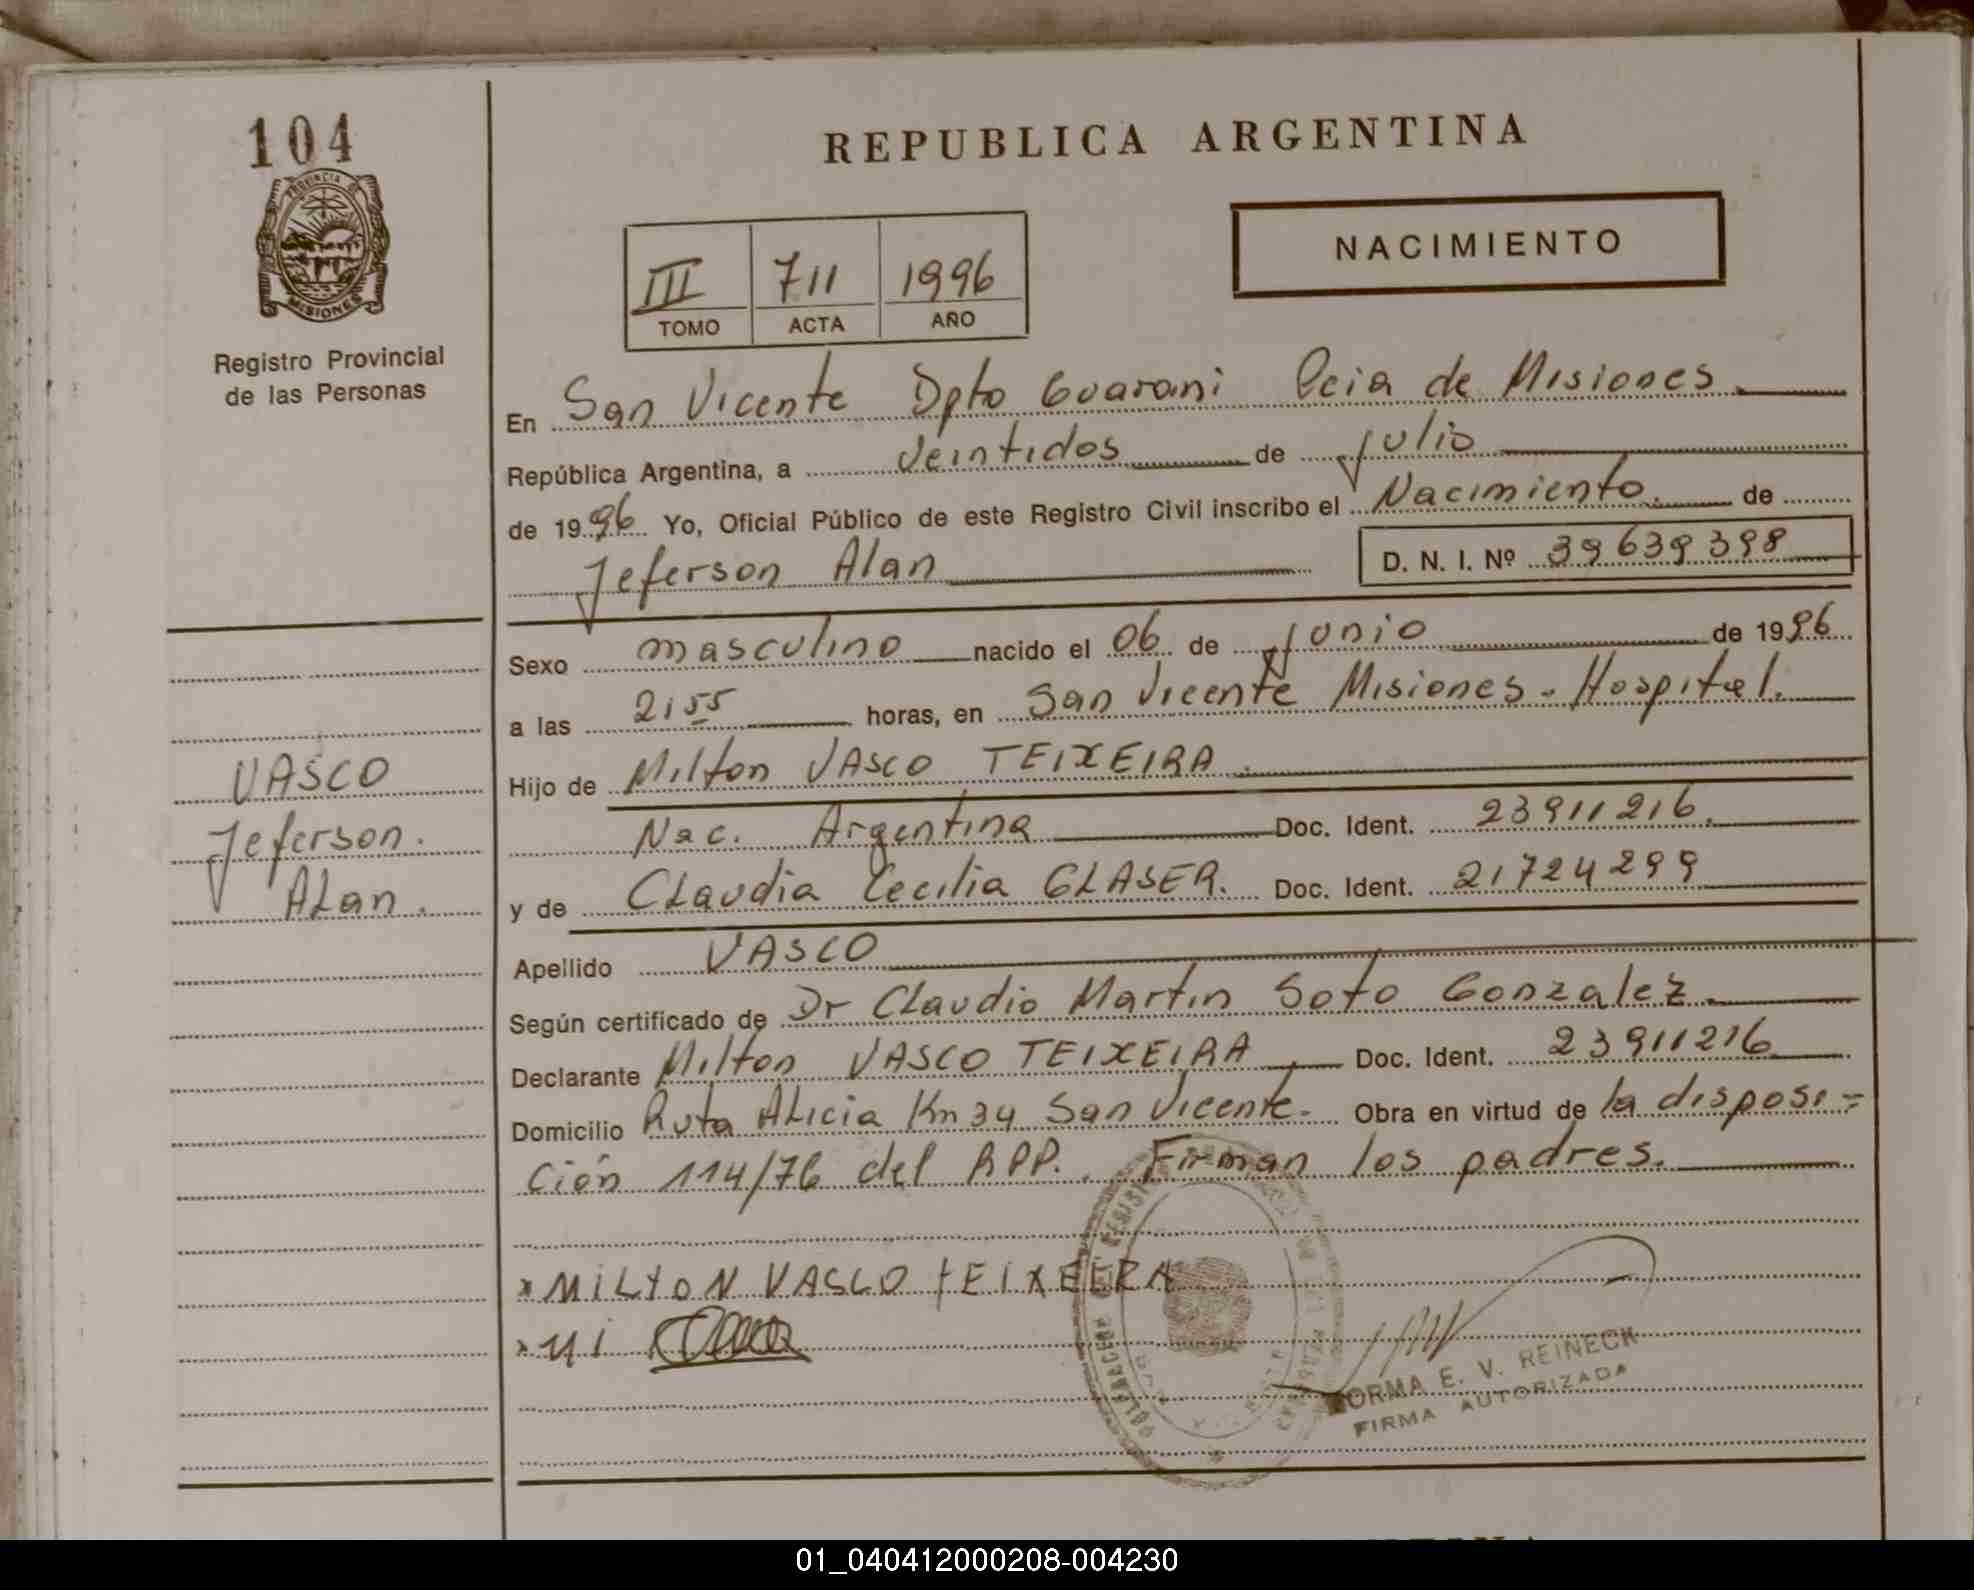 104
PROVINCIA DE
MISIONES
Registro Provincial
de las Personas
REPUBLICA ARGENTINA
NACIMIENTO
III 711 1996
TOMO ACTA AÑO
En San Vicente Dpto Guarani Pcia de Misiones
República Argentina, a Veintidos de julio
de 1996 Yo, Oficial Público de este Registro Civil inscribo el Nacimiento. de
Jeferson Alan D. N. I. Nº 39639398
Sexo masculino nacido el 06 de junio de 1996
a las 2155 horas, en San Vicente Misiones - Hospital.
Hijo de Milton VASCO TEIXEIRA
Nac. Argentina Doc. Ident. 23911216.
y de CLaudia Cecilia GLASER. Doc. Ident. 21724299
Apellido VASCO
Según certificado de Dr CLaudio Martin Soto Gonzalez
Declarante Milton VASCO TEIXEIRA Doc. Ident. 23911216
Domicilio Ruta ALicia Km 34 San Vicente. Obra en virtud de la disposi=
ción 114/76 del RPP. Firman los padres.
VASCO
Jeferson.
ALan.
x MILTON VASCO TEIXEIRA
NORMA E. V. REINECK
FIRMA AUTORIZADA
01_040412000208-004230